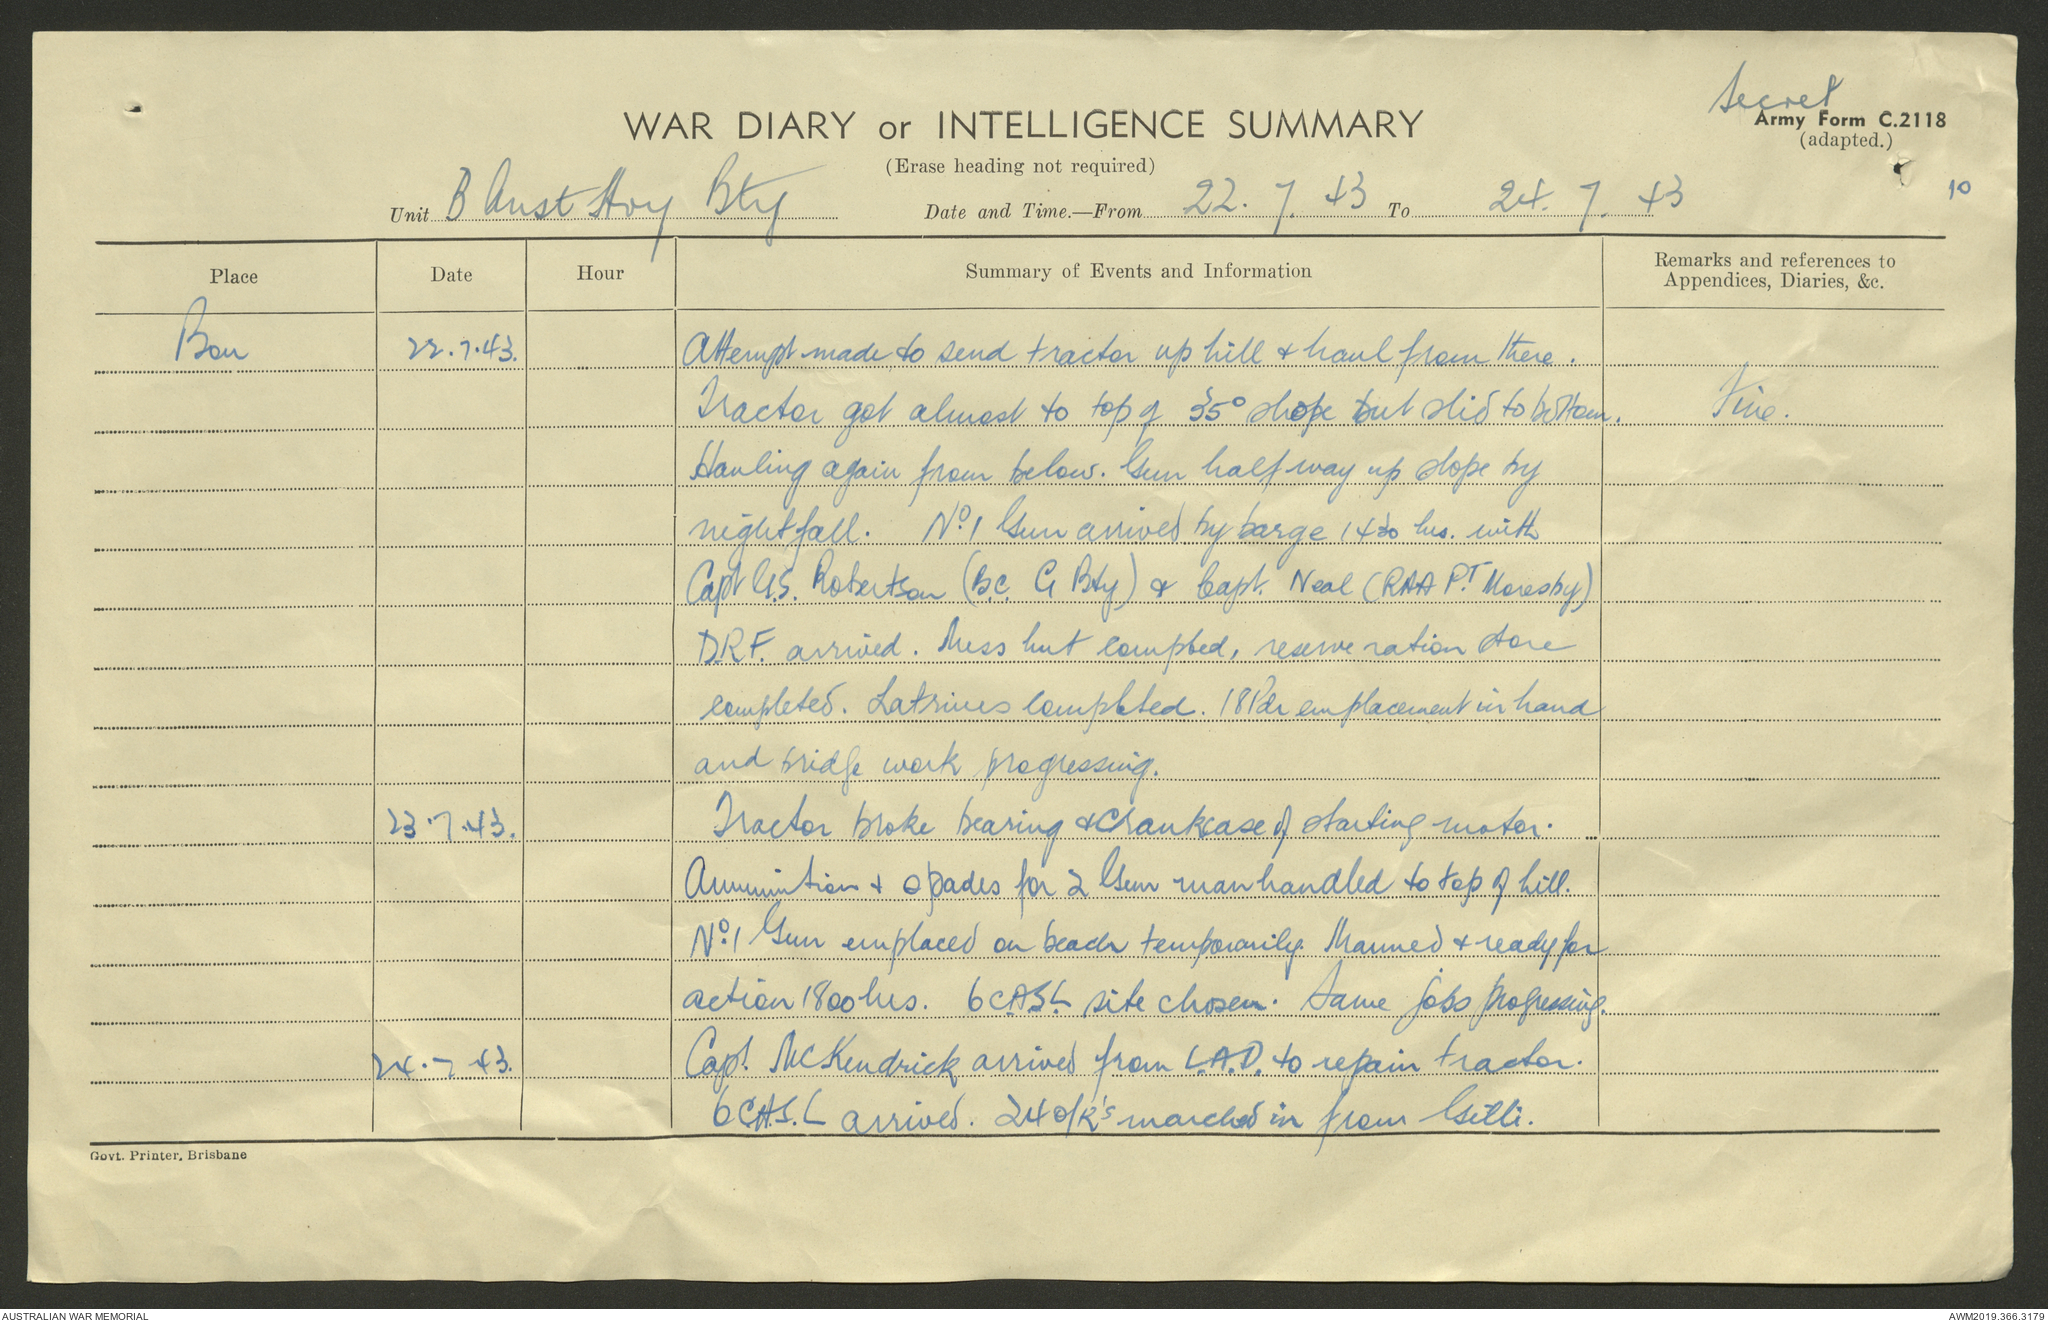 Secret
WAR DIARY or INTELLIGENCE SUMMARY
Army Form C.2118
(adapted.)
(Erase heading not required)
10
Unit B Aust Hvy Bty Date and Time.—From 22. 7. 43 To 24. 7. 43
Place Date Hour Summary of Events and Information Remarks and references to
Appendices, Diaries, &c.
Bou 22.7.43. Attempt made to send tractor up hill & haul from there.
Tractor got almost to top of 35° slope but slid to bottom. Fine.
Hauling again from below. Gun half way up slope by
nightfall. No. 1 Gun arrived by barge 1430 hrs. with
Capt G.S. Robertson (B.C. G Bty) & Capt. Neal (RAA PT Moresby)
D.R.F. arrived. Mess hut compted, reserve ration store
completed. Latrines completed. 18Pdr emplacement in hand
and bridge work progressing.
23.7.43. Tractor broke bearing & crankcase of starting motor.
Ammunition & spades for 2 Gun manhandled to top of hill.
No. 1 Gun emplaced on beach temporarily. Manned & ready for
action 1800 hrs. 6 CASL site chosen. Same jobs progressing.
24.7.43. Capt. McKendrick arrived from L.A.D. to repair tractor.
6 C.A.S.L arrived. 24 O/R's marched in from Gilli.
Govt. Printer, Brisbane
AUSTRALIAN WAR MEMORIAL
AWM2019.366.3179